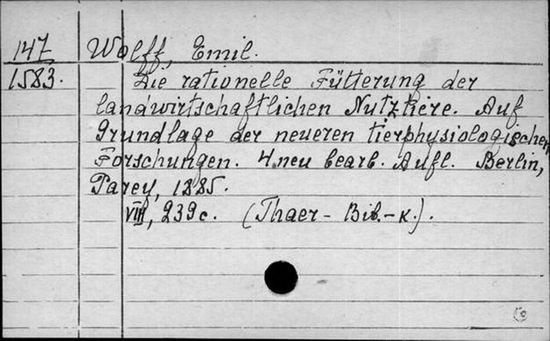 147 Wolff, Emil.
1583. Die rationelle Fütterung der
landwirtschaftlichen Nutztiere. Auf
Grundlage der neueren tierphysiologischen
Forschungen. 4. neu bearb. Aufl. Berlin,
Parey, 1885.
VIII, 239 c. (Thaer-Bib.-k.).